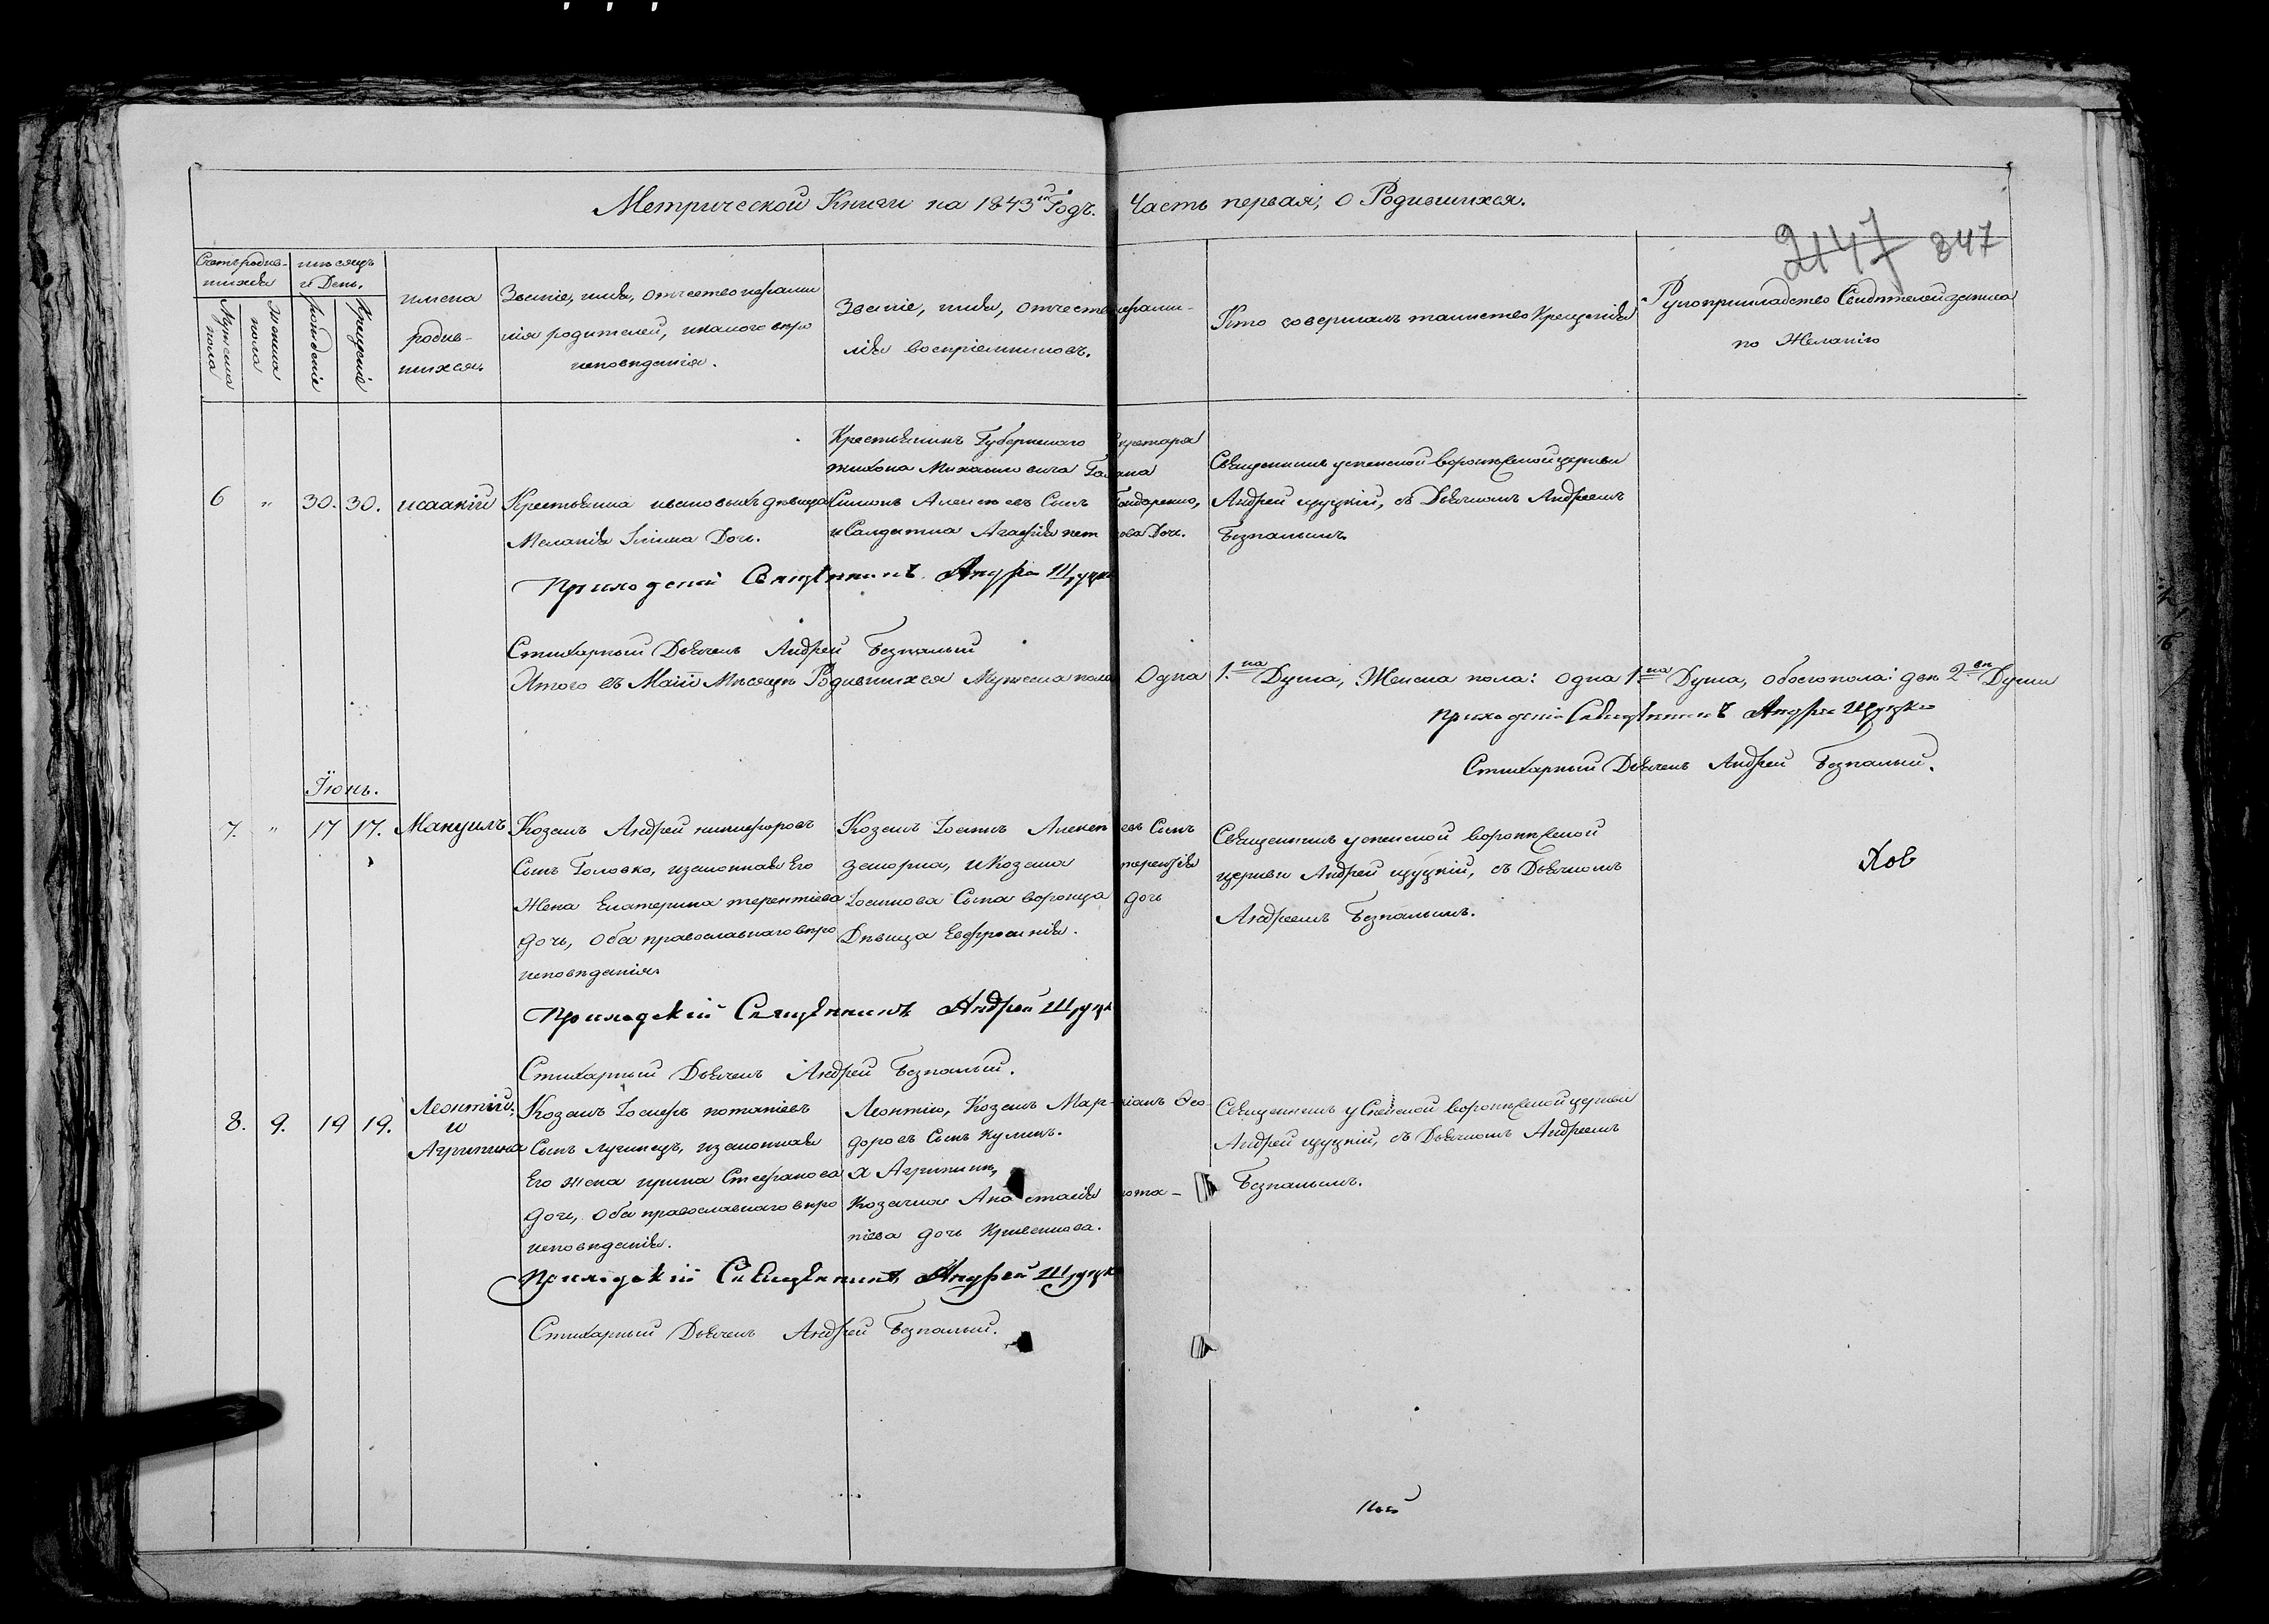 Метрической Книги на 1843й Годъ. Часть первая, о Родившихся.
2147 347
Счетъ родив-
шихся
мѣсяцъ
и День.
Мужеска
пола
Женска
пола
рожденіе
Крещеніе
имена
родив-
шихся.
Званіе, имя, отчество ифамилія
родителей, икакого вѣро
исповѣданія.
Званіе, имя, отчество ифами-
лія воспріемниковъ.
Кто совершалъ таинство Крещенія
Рукоприкладство Свидѣтелей записи
по Желанію
6 " 30. 30. исаакій
Крестьянка
дѣвица
Меланія Дочь.
Крестьянинъ Губернскаго Секретаря
тихона Михайловича
Симонъ Алексѣевъ Сынъ Бондаренко,
иСолдатка Агафія петрова Дочь.
Священникъ успенской воронковской церкви
Андрей щуцкій, съ Дьячкомъ Андреемъ
Безпалымъ.
Приходскій Священникъ Андрей Щуцкі
Стихарный Дьячекъ Андрей Безпалый
Итого въ Маіи Мѣсяцѣ Родившихся Мужеска пола Одна 1.на Душа, Женска пола: одна 1на Душа, обоего пола: двѣ 2вѣ Души
приходскій Священникъ Андрей Щуцкій
Стихарный Дьячекъ Андрей Безпалый.
Іюнь.
7. " 17 17. Мануилъ
Козакъ Андрей никифоровъ
Сынъ Головко, изаконная Его
Жена Екатерина терентіева
дочь, оба православнаго вѣро
исповѣданія.
Козакъ Іоаннъ Алексѣевъ Сынъ
заморка, иКозака терентія
Іоаннова Сына воронца дочь
Дѣвица Евфросинія.
Священникъ успенской воронковской
церкви Андрей щуцкій, съ Дьячкомъ
Андреемъ Безпалымъ.
Приходскій Священникъ Андрей Щуцкі
Стихарный Дьячекъ Андрей Безпалый.
8. 9. 19 19. Леонтій,
и
Агрипина
Козакъ Іосифъ потапіевъ
Сынъ лучинецъ, изаконная
Его жена ирина Стефанова
дочь, оба православнаго вѣро
исповѣданія.
Леонтію, Козакъ Маркіанъ Ѳео-
доровъ Сынъ куликъ.
А Агрипинѣ,
Козачка Анастасія пота-
піева дочь Кривенкова.
Священникъ успенской воронковской церкви
Андрей щуцкій, съ Дьячкомъ Андреемъ
Безпалымъ.
Приходскій Священникъ Андрей Щуцкі
Стихарный Дьячекъ Андрей Безпалый.